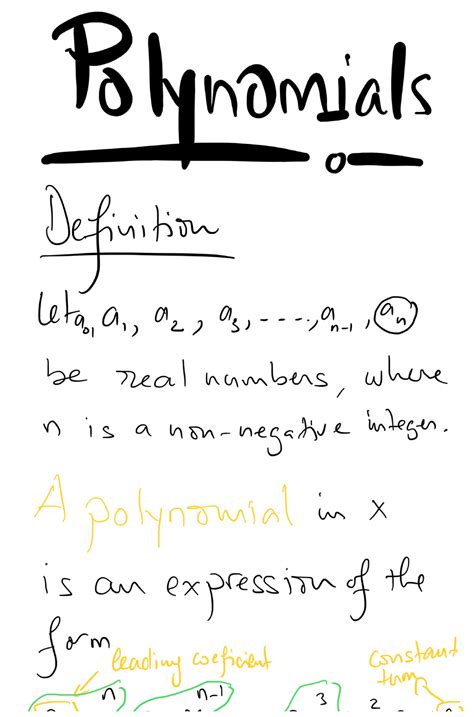 Polynomials
Definition
Let a₀, a₁, a₂, a₃, -----, aₙ₋₁, aₙ
be real numbers, where
n is a non-negative integer.
A polynomial in x
is an expression of the
form
leading coeficient
constant
term
n n-1 3 2